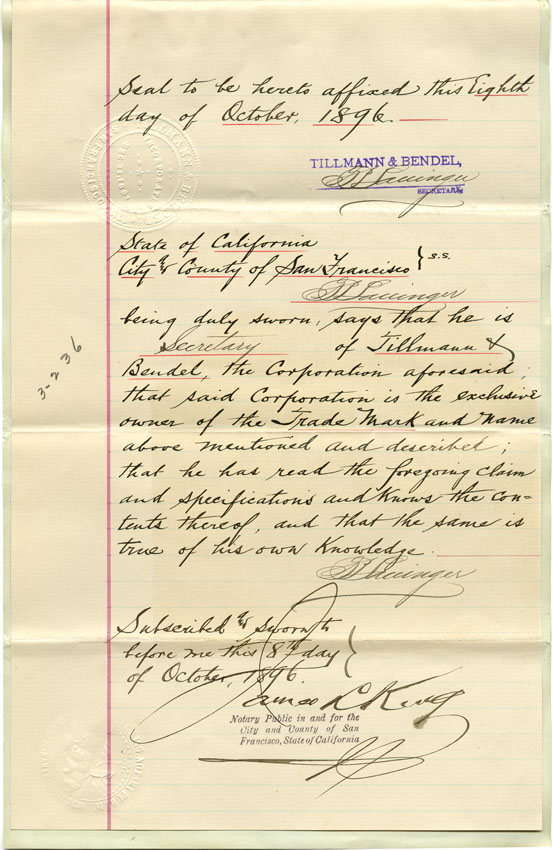 Seal to be hereto affixed this Eighth
day of October, 1896.
TILLMANN & BENDEL,
SECRETARY.
State of California
City & County of San Francisco } s.s.
being duly sworn, says that he is
Secretary of Tillmann &
Bendel, the Corporation aforesaid;
that said Corporation is the exclusive
owner of the Trade Mark and Name
above mentioned and described;
that he has read the foregoing claim
and specifications and knows the con-
tents thereof, and that the same is
true of his own Knowledge.
3-236
Subscribed & sworn to
before me this 8th day
of October, 1896.
James L. King
Notary Public in and for the
City and County of San
Francisco, State of California